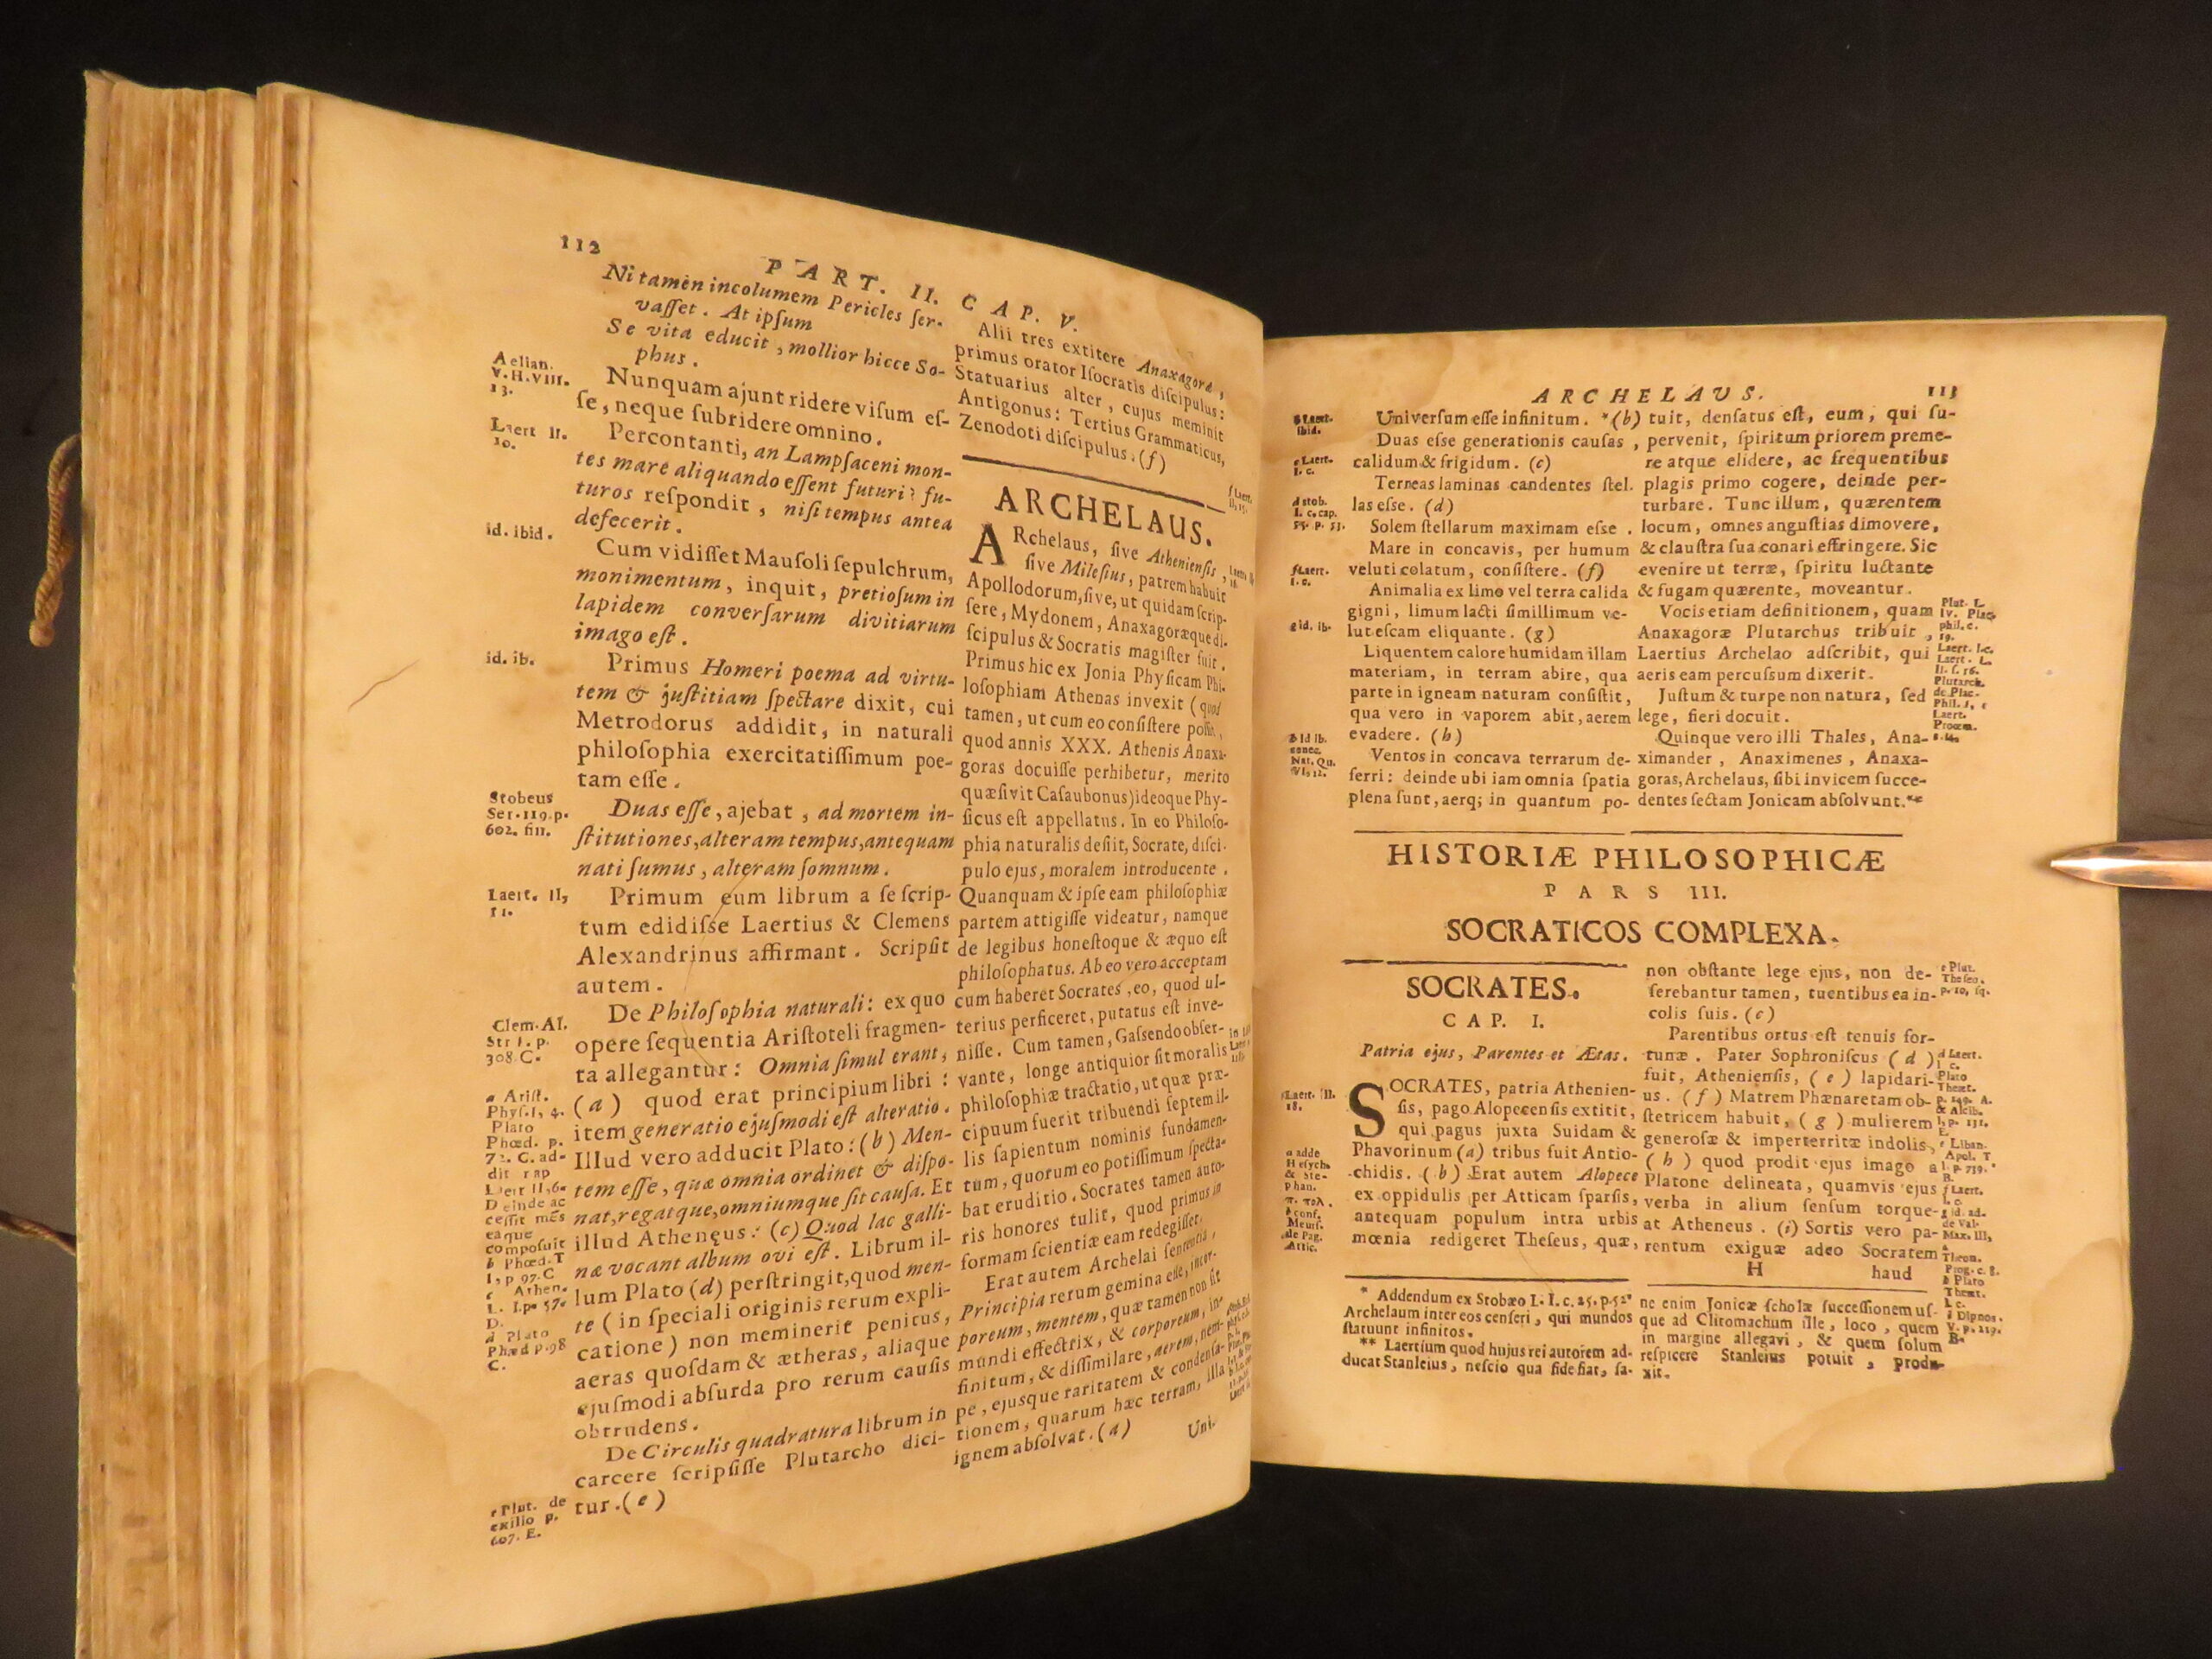 112
PART. II. CAP. V.
Ni tamen incolumem Pericles ſer-
vaſſet. At ipſum
Se vita educit, mollior hicce So-
phus.
Aelian.
V.H.VIII.
13.
Nunquam ajunt ridere viſum eſ-
ſe, neque ſubridere omnino.
Laert II.
10.
Percontanti, an Lampſaceni mon-
tes mare aliquando eſſent futuri? fu-
turos reſpondit, niſi tempus antea
defecerit.
id. ibid.
Cum vidiſſet Mauſoli ſepulchrum,
monimentum, inquit, pretioſum in
lapidem converſarum divitiarum
imago eſt.
id. ib.
Primus Homeri poema ad virtu-
tem & juſtitiam ſpectare dixit, cui
Metrodorus addidit, in naturali
philoſophia exercitatiſſimum poe-
tam eſſe.
Stobeus
Ser. 119. p.
602. fin.
Duas eſſe, ajebat, ad mortem in-
ſtitutiones, alteram tempus, antequam
nati ſumus, alteram ſomnum.
Laert. II,
11.
Primum eum librum a ſe ſcrip-
tum edidiſse Laertius & Clemens
Alexandrinus affirmant. Scripſit
autem.
Clem. Al.
Str I. p.
308. C.
De Philoſophia naturali: ex quo
opere ſequentia Ariſtoteli fragmen-
ta allegantur: Omnia ſimul erant,
a Ariſt.
Phyſ. I, 4.
Plato
Phœd. p.
72. C. ad-
dit
Laert II, 6.
Deinde ac
ceſſit mẽs
eaque
compoſuit
b Phœd. T
I, p 97. C
c Athen.
L. I. p. 57.
D.
d Plato
Phæd p. 98
C.
(a) quod erat principium libri:
item generatio ejuſmodi eſt alteratio.
Illud vero adducit Plato: (b) Men-
tem eſſe, quæ omnia ordinet & diſpo-
nat, regatque, omniumque ſit cauſa. Et
illud Athenęus: (c) Quod lac galli-
næ vocant album ovi eſt. Librum il-
lum Plato (d) perſtringit, quod men-
te (in ſpeciali originis rerum expli-
catione) non meminerit penitus,
aeras quoſdam & ætheras, aliaque
ejuſmodi abſurda pro rerum cauſis
obtrudens.
De Circulis quadratura librum in
carcere ſcripſiſſe Plutarcho dici-
tur. (e)
e Plut. de
exilio p.
607. E.
Alii tres extitere Anaxagoræ,
primus orator Iſocratis diſcipulus:
Statuarius alter, cujus meminit
Antigonus: Tertius Grammaticus,
Zenodoti diſcipulus. (f)
ARCHELAUS.
ARchelaus, ſive Athenienſis,
ſive Mileſius, patrem habuit
Apollodorum, ſive, ut quidam ſcrip-
ſere, Mydonem, Anaxagoræque di-
ſcipulus & Socratis magiſter fuit.
Primus hic ex Jonia Phyſicam Phi-
loſophiam Athenas invexit (quod
tamen, ut cum eo conſiſtere poſſit,
quod annis XXX. Athenis Anaxa-
goras docuiſſe perhibetur, merito
quæſivit Caſaubonus) ideoque Phy-
ſicus eſt appellatus. In eo Philoſo-
phia naturalis deſiit, Socrate, diſci-
pulo ejus, moralem introducente.
Quanquam & ipſe eam philoſophiæ
partem attigiſſe videatur, namque
de legibus honeſtoque & æquo eſt
philoſophatus. Ab eo vero acceptam
cum haberet Socrates, eo, quod ul-
terius perficeret, putatus eſt inve-
niſſe. Cum tamen, Gaſsendo obſer-
vante, longe antiquior ſit moralis
philoſophiæ tractatio, ut quæ præ-
cipuum fuerit tribuendi ſeptem il-
lis ſapientum nominis fundamen-
tum, quorum eo potiſſimum ſpecta-
bat eruditio. Socrates tamen auto-
ris honores tulit, quod primus in
formam ſcientiæ eam redegiſſet.
Erat autem Archelai ſententia,
Principia rerum gemina eſſe, incor-
poreum, mentem, quæ tamen non ſit
mundi effectrix, & corporeum, in-
finitum, & diſſimilare, aerem, nem-
pe, ejusque raritatem & condenſa-
tionem, quarum hæc terram, illa
ignem abſolvat. (a)
Uni-
ARCHELAUS.
113
b Laert.
ibid.
Univerſum eſſe infinitum. *(b)
Duas eſse generationis cauſas,
c Laert.
l. c.
calidum & frigidum. (c)
Terneas laminas candentes ſtel-
d stob.
I. c. cap.
25. p. 53.
las eſse. (d)
Solem ſtellarum maximam eſse.
Mare in concavis, per humum
f Laert.
l. c.
veluti colatum, conſiſtere. (f)
Animalia ex limo vel terra calida
gigni, limum lacti ſimillimum ve-
g id. ib.
lut eſcam eliquante. (g)
Liquentem calore humidam illam
materiam, in terram abire, qua
parte in igneam naturam conſiſtit,
qua vero in vaporem abit, aerem
h Id ib.
Nat. Qu.
VI, 12.
evadere. (h)
Ventos in concava terrarum de-
ferri: deinde ubi iam omnia ſpatia
plena ſunt, aerq; in quantum po-
tuit, denſatus eſt, eum, qui ſu-
pervenit, ſpiritum priorem preme-
re atque elidere, ac frequentibus
plagis primo cogere, deinde per-
turbare. Tunc illum, quærentem
locum, omnes anguſtias dimovere,
& clauſtra ſua conari effringere. Sic
evenire ut terræ, ſpiritu luctante
& fugam quærente, moveantur.
Vocis etiam definitionem, quam
Anaxagoræ Plutarchus tribuit,
Laertius Archelao adſcribit, qui
aeris eam percuſsum dixerit.
Juſtum & turpe non natura, ſed
lege, fieri docuit.
Quinque vero illi Thales, Ana-
ximander, Anaximenes, Anaxa-
goras, Archelaus, ſibi invicem ſucce-
dentes ſectam Jonicam abſolvunt.**
Plut. L.
IV. Plac.
phil. c.
19.
Laert. l. c.
Laert. L.
II. ſ. 16.
Plutarch.
de Plac.
Phil. 1,
Laert.
Proœm.
HISTORIÆ PHILOSOPHICÆ
PARS III.
SOCRATICOS COMPLEXA.
SOCRATES.
CAP. I.
Patria ejus, Parentes et Ætas.
Laert. II.
18.
SOCRATES, patria Athenien-
ſis, pago Alopecenſis extitit,
qui pagus juxta Suidam &
a adde
Heſych.
& Ste-
phan.
π. πολ.
b conf.
Meurſ.
de Pag.
Attic.
Phavorinum (a) tribus fuit Antio-
chidis. (b) Erat autem Alopece
ex oppidulis per Atticam ſparſis,
antequam populum intra urbis
mœnia redigeret Theſeus, quæ,
non obſtante lege ejus, non de-
ſerebantur tamen, tuentibus ea in-
colis ſuis. (c)
Parentibus ortus eſt tenuis for-
tunæ. Pater Sophroniſcus (d)
fuit, Athenienſis, (e) lapidari-
us. (f) Matrem Phænaretam ob-
ſtetricem habuit, (g) mulierem
generoſæ & imperterritæ indolis,
(h) quod prodit ejus imago a
Platone delineata, quamvis ejus
verba in alium ſenſum torque-
at Atheneus. (i) Sortis vero pa-
rentum exiguæ adeo Socratem
c Plut.
Theſeo.
p. 10, ſq.
d Laert.
l c.
Plato
Theæt.
p. 149. A.
& Alcib.
I, p. 131.
E.
e Liban.
Apol. T
I. p. 719.
B.
f Laert.
l. c.
g id. ad-
de Val-
Max. III,
Theon.
Prog. c. 8.
h Plato
Theæt.
l. c.
i Dipnos.
V. p. 219.
B.
H
haud
* Addendum ex Stobæo L. I. c. 25. p. 52.
Archelaum inter eos cenſeri, qui mundos
ſtatuunt infinitos.
** Laertium quod hujus rei autorem ad-
ducat Stanleius, neſcio qua fide fiat, ſa-
ne enim Jonicæ ſcholæ ſucceſſionem uſ-
que ad Clitomachum ille, loco, quem
in margine allegavi, & quem ſolum
reſpicere Stanleius potuit, produ-
xit.